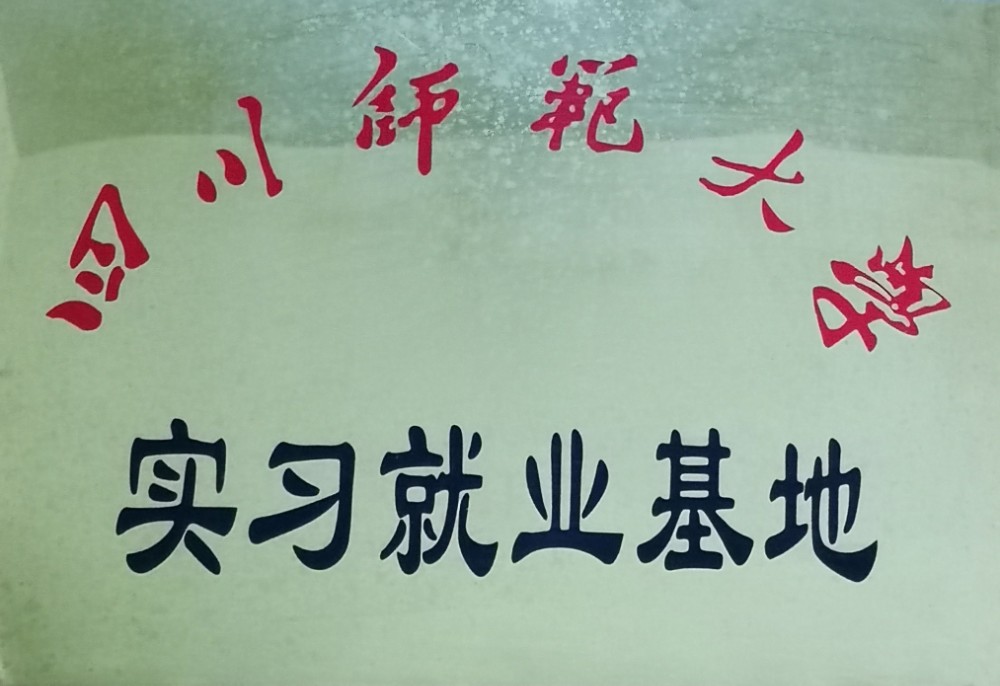 四川师範大學
实习就业基地